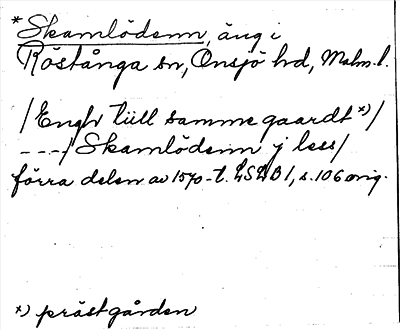 *Skamlödenn, äng i
Röstånga sn, Onsjö hd, Malm. l.
/Engh tiill samme gaardt *)/
----/Skamlödenn j lees/
förra delen av 1570-t. LSLB I, s. 106 orig.
*) prästgården